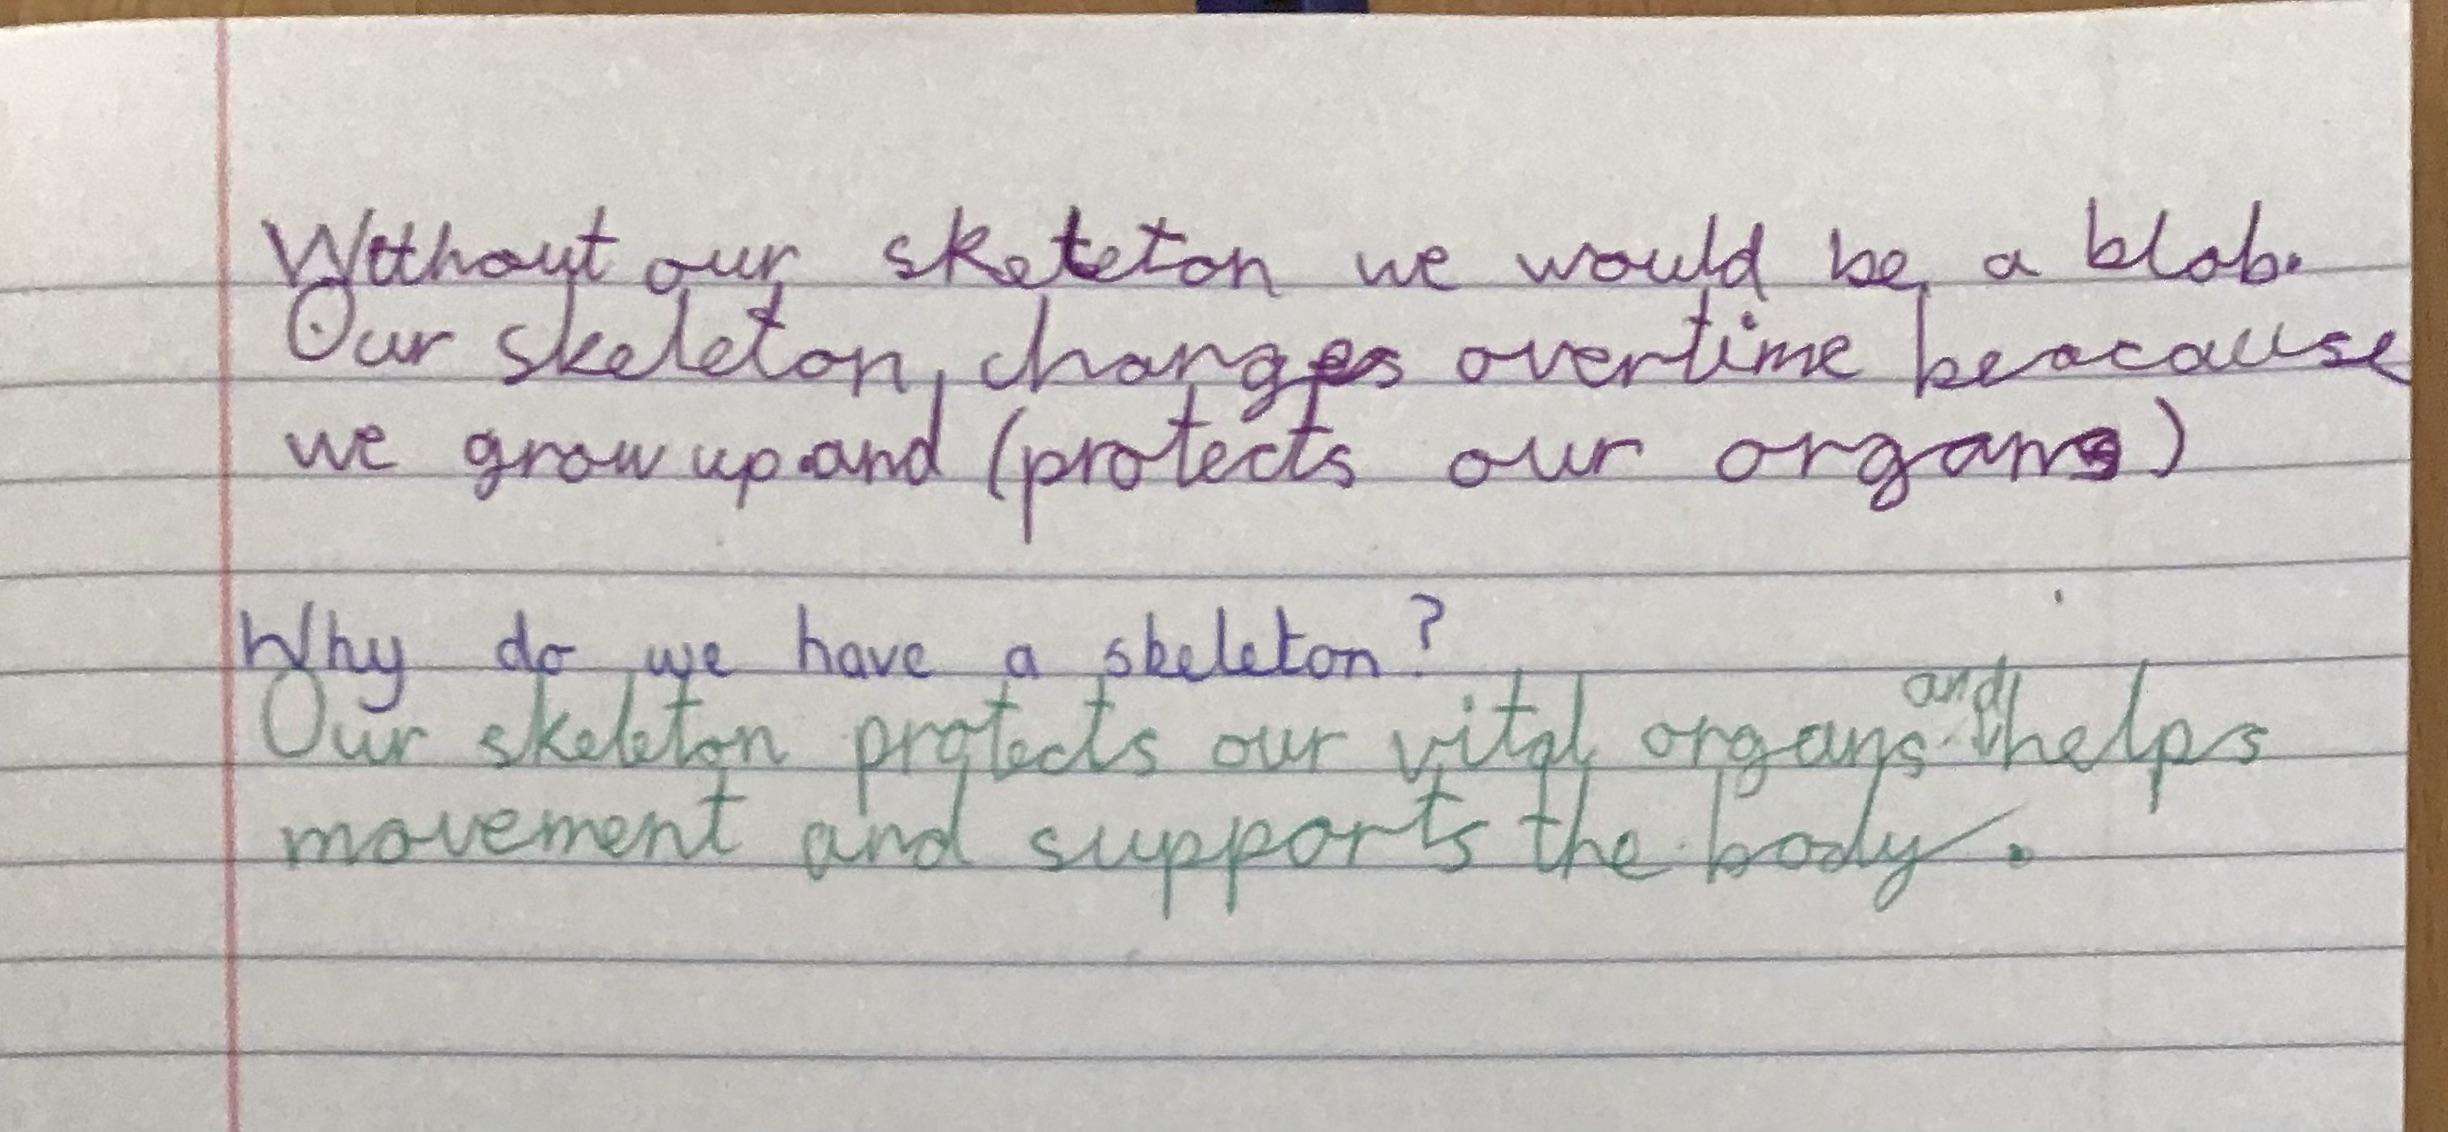 Without our skeleton we would be a blob.
Our skeleton, changes overtime beacause
we grow up and (protects our organs)
Why do we have a skeleton?
Our skeleton protects our vital organs and helps
movement and supports the body.